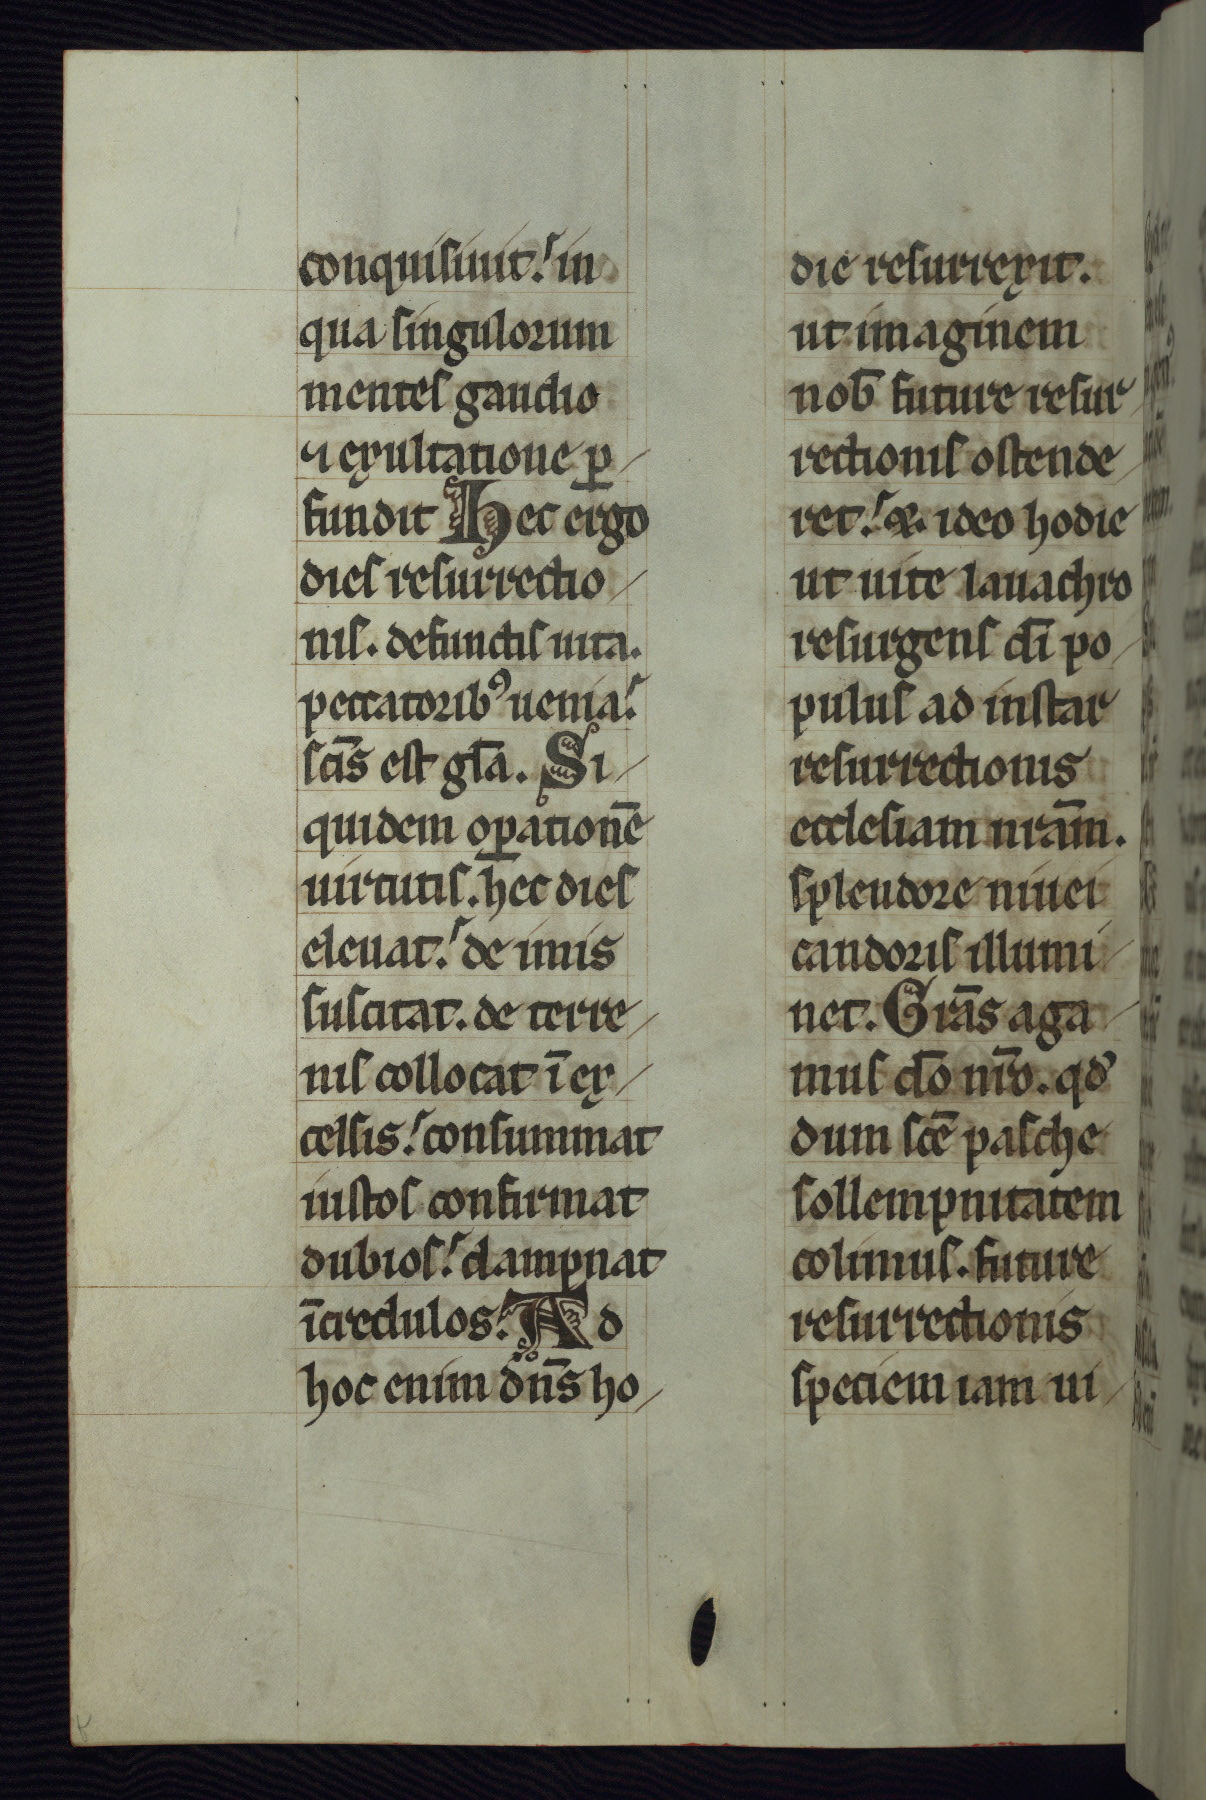 conquisiuit. in
qua singulorum
mentes gaudio
⁊ exultatione ꝑ
fundit Hec ergo
dies resurrectio
nis. defunctis uita.
peccatorib⁹ uenia.
sc̄is est gl̄a. Si
quidem oꝑationē
uirtutis. hec dies
eleuat. de imis
suscitat. de terre
nis collocat ī ex
celsis. consummat
iustos confirmat
dubios. dampnat
īcredulos. Ad
hoc enim dn̄s ho
die resurrexit.
ut imaginem
nob̄ future resur
rectionis ostende
ret. &. ideo hodie
ut uite lauachro
resurgens dī po
pulus ad instar
resurrectionis
ecclesiam nr̄am.
splendore niuei
candoris illumi
net. Gr̄as aga
mus dō nr̄o. qd̓
dum scē pasche
sollempnitatem
colimus. future
resurrectionis
speciem iam ui